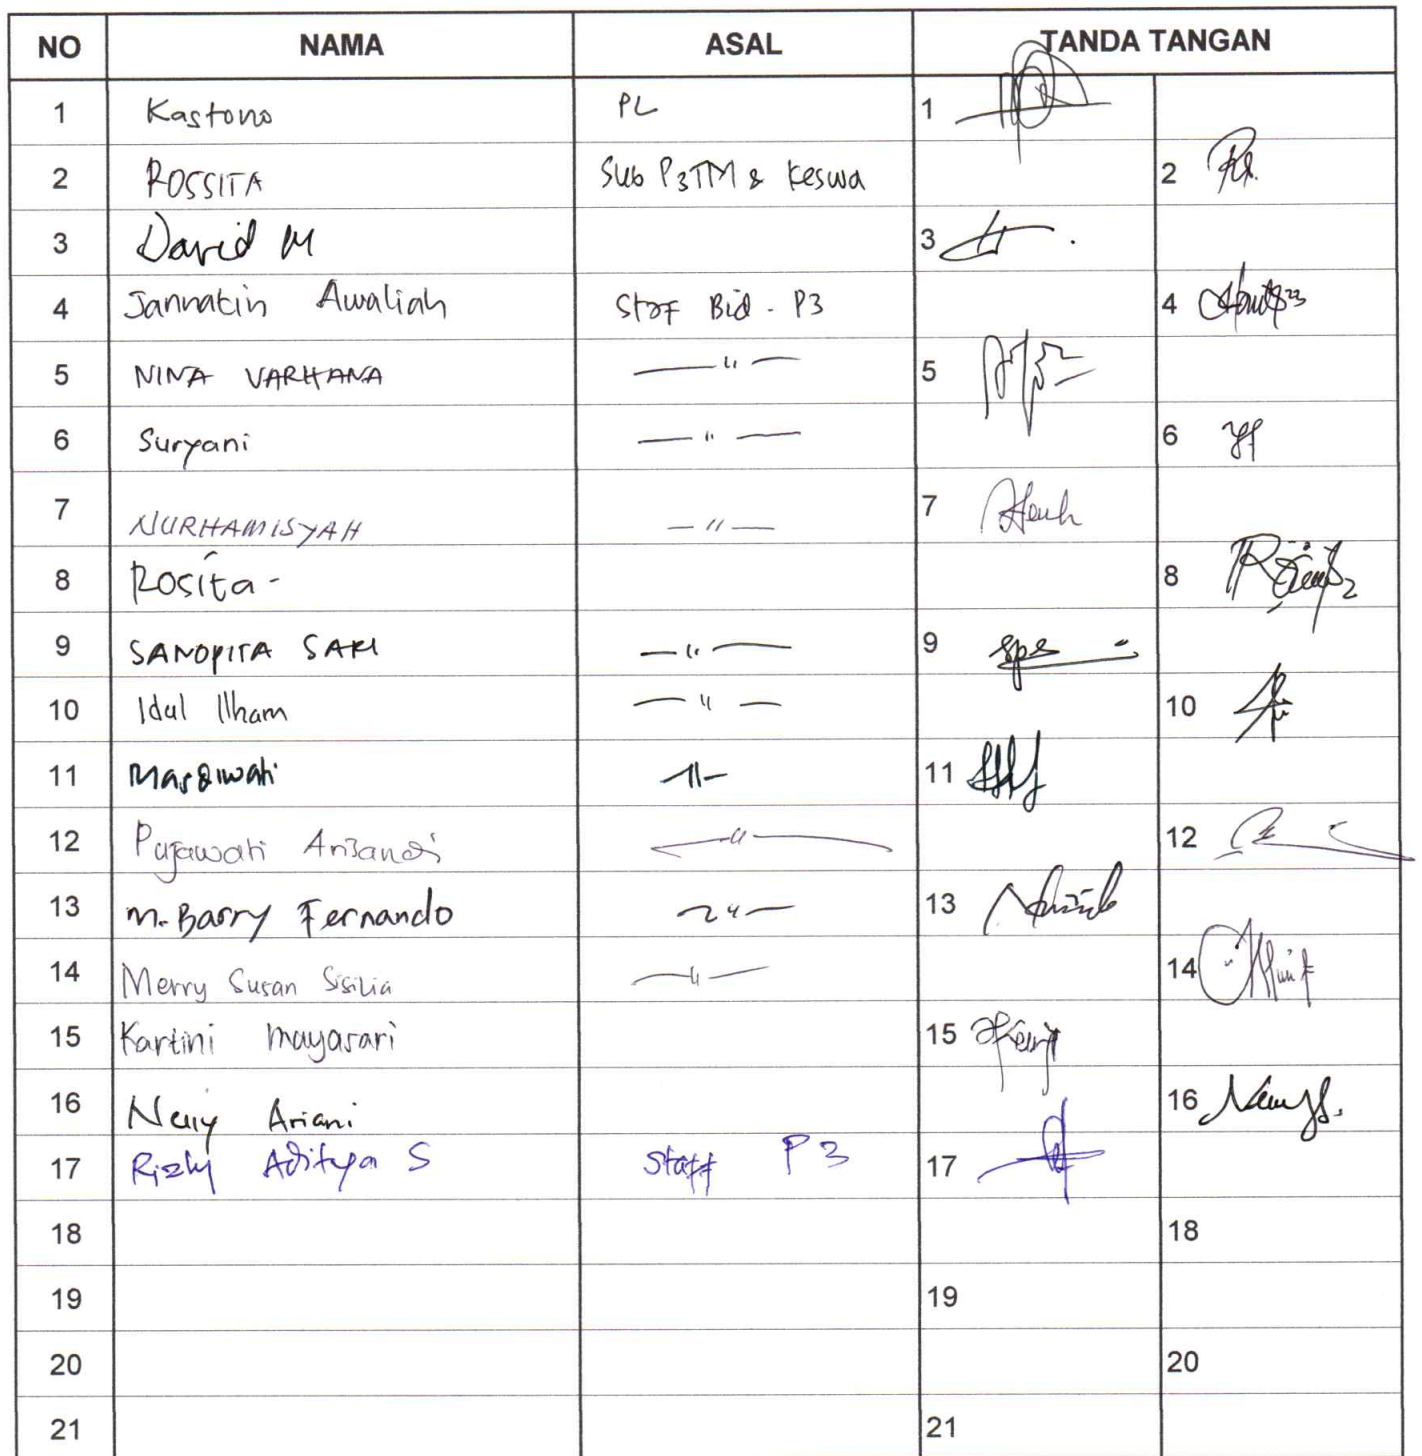 NO NAMA ASAL TANDA TANGAN
1 Kastono PL 1
2 ROSSITA Sub P3TM & Keswa 2
3 David M 3
4 Jannatin Awaliah Staf Bid - P3 4
5 NINA VARHANA — " — 5
6 Suryani — " — 6
7 NURHAMISYAH — " — 7
8 Rosita - 8
9 SANOPITA SARI — " — 9
10 Idul Ilham — " — 10
11 — " — 11
12 Pujawati — " — 12
13 M. Barry Fernando — " — 13
14 Merry Susan Sisilia — " — 14
15 Kartini Mayasari 15
16 Ariani 16
17 Rizky Aditya S Staff P3 17
18 18
19 19
20 20
21 21